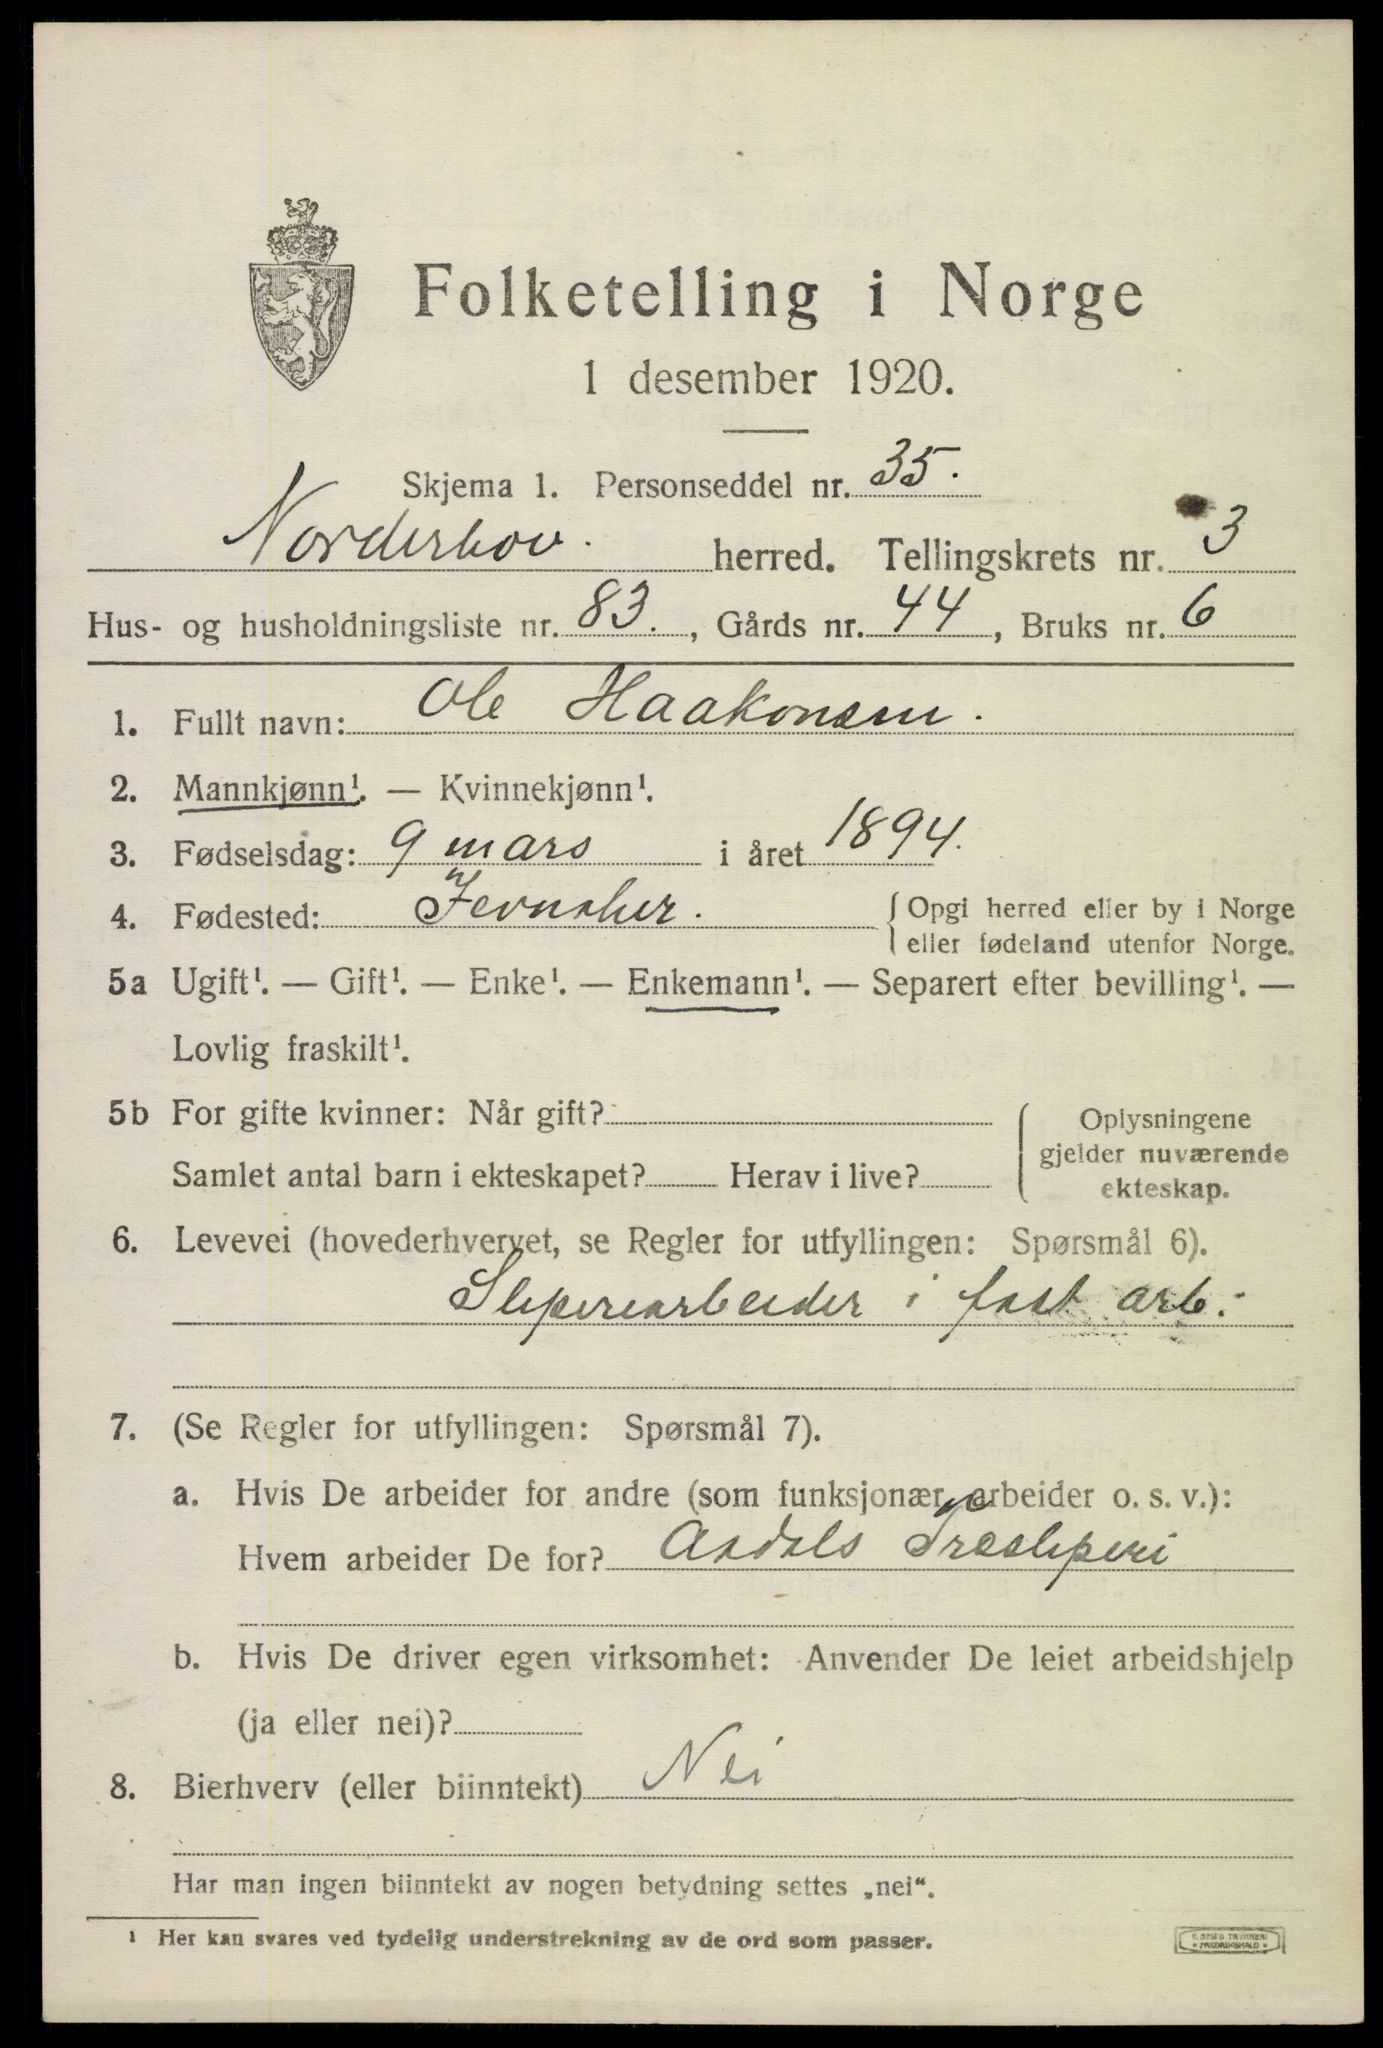 Folketelling i Norge
1 desember 1920.
Skjema 1. Personseddel nr. 35.
Norderhov. herred. Tellingskrets nr. 3
Hus- og husholdningsliste nr. 83., Gårds nr. 44, Bruks nr. 6
1. Fullt navn: Ole Haakonsen.
2. Mannkjønn¹. — Kvinnekjønn¹.
3. Fødselsdag: 9 mars i året 1894.
4. Fødested: Jevnaker. { Opgi herred eller by i Norge
eller fødeland utenfor Norge.
5a Ugift¹. — Gift¹. — Enke¹. — Enkemann¹. — Separert efter bevilling¹. —
Lovlig fraskilt¹.
5b For gifte kvinner: Når gift? { Oplysningene
gjelder nuværende
Samlet antal barn i ekteskapet? Herav i live? ekteskap.
6. Levevei (hovederhvervet, se Regler for utfyllingen: Spørsmål 6).
Sliperiarbeider i fast arb.
7. (Se Regler for utfyllingen: Spørsmål 7).
a. Hvis De arbeider for andre (som funksjonær, arbeider o. s. v.):
Hvem arbeider De for? Aadals Træsliperi
b. Hvis De driver egen virksomhet: Anvender De leiet arbeidshjelp
(ja eller nei)?
8. Bierhverv (eller biinntekt) Nei
Har man ingen biinntekt av nogen betydning settes „nei“.
¹ Her kan svares ved tydelig understrekning av de ord som passer.